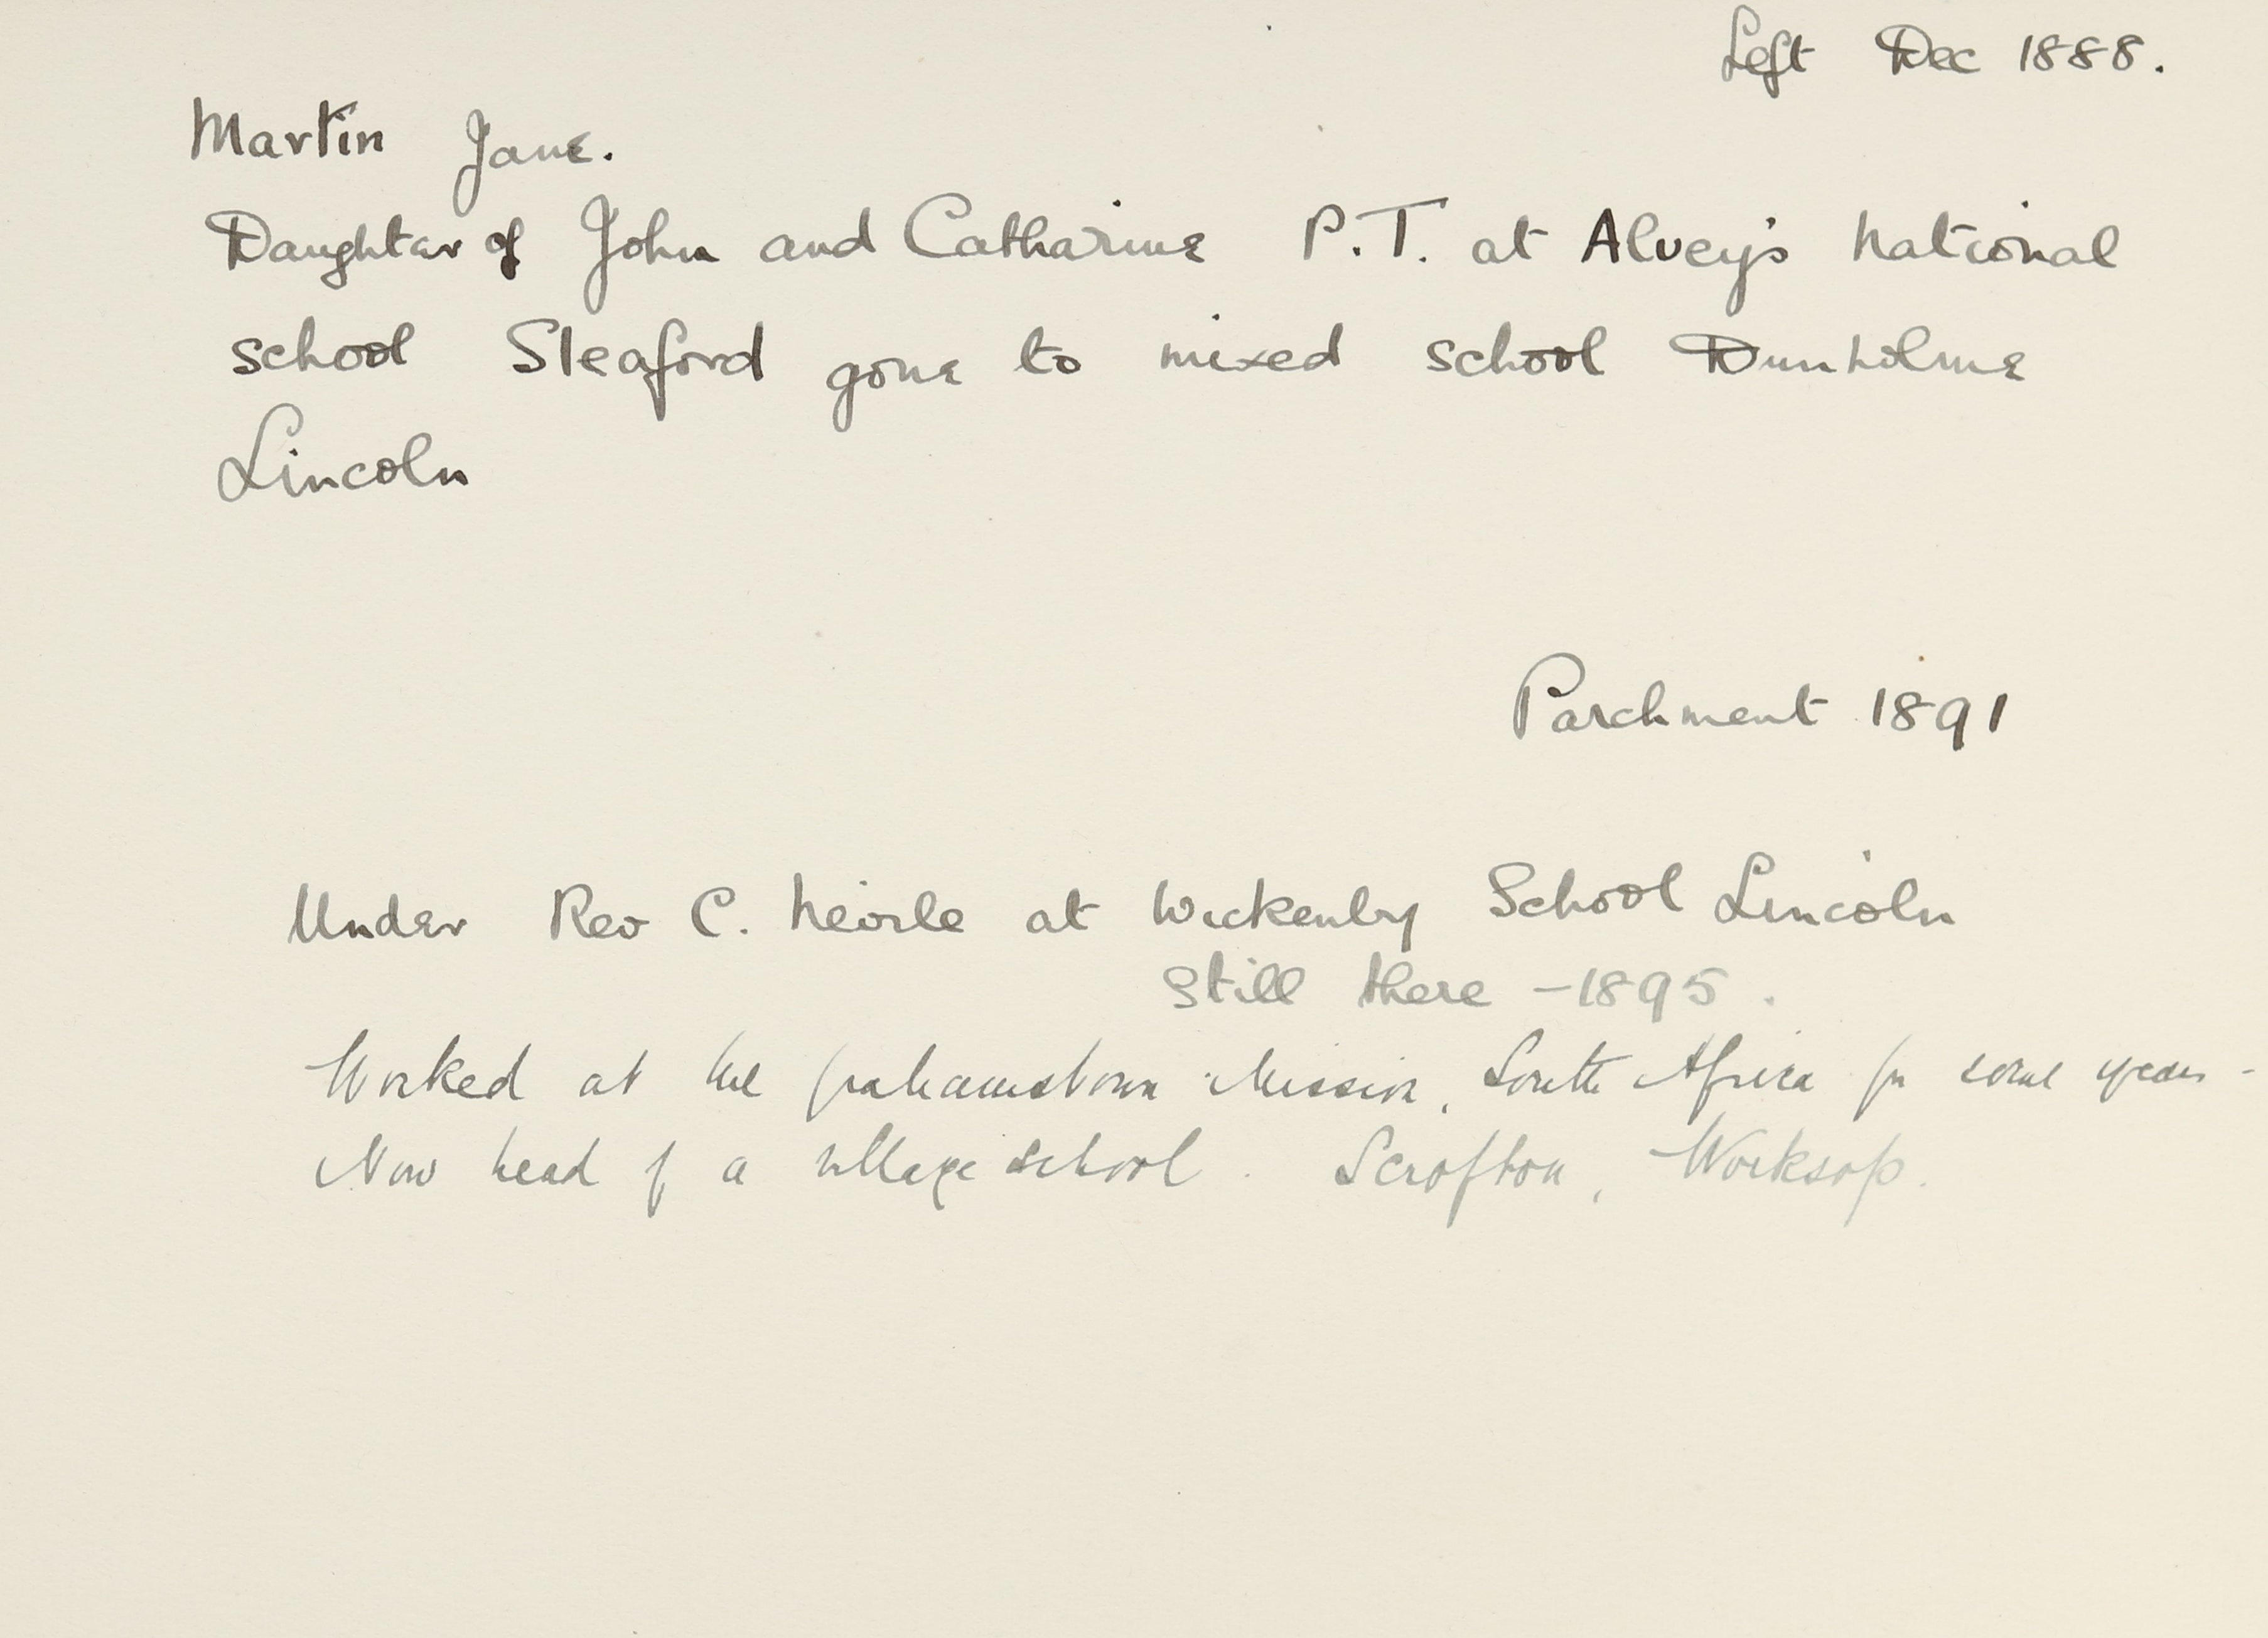 Left Dec 1888.
Martin Jane.
Daughter of John and Catharine P.T. at Alvey's National
school Sleaford gone to mixed school Dunholme
Lincoln
Parchment 1891
Under Rev C. at Wickenby School Lincoln
Still there - 1895.
Worked at the Grahamstown Mission, South Africa for some years -
Now head of a village school. Scrofton, Worksop.